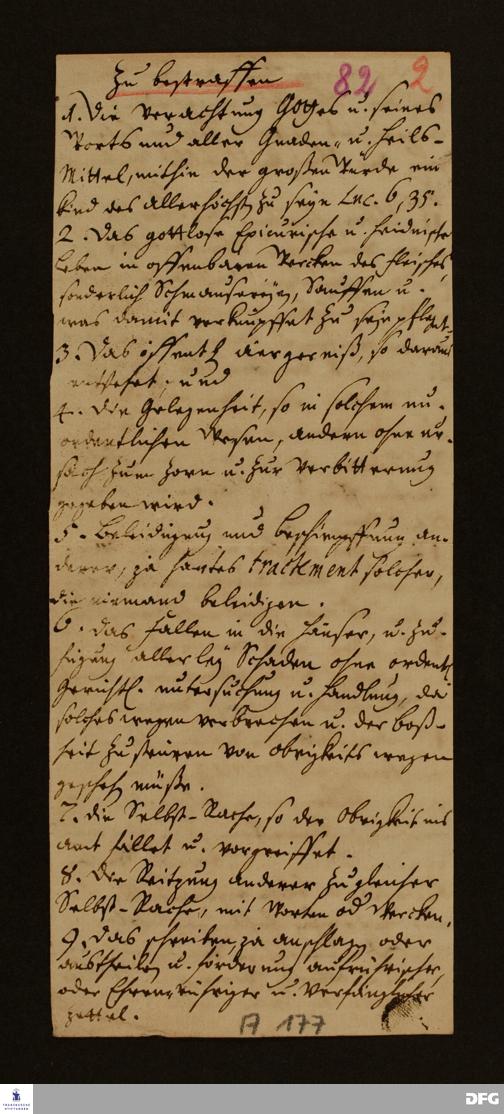 Zu bestraffen 82 2
1. Die Verachtung Gottes u. seines
Worts und aller Gnaden- u. Heils-
Mittel, mithin der großen Würde ein
Kind des Allerhöchst. zu seyn Luc. 6, 35.
2. Das gottlose Epicurische u. heidnische
Leben in offenbaren Wercken des Fleisches,
sonderlich Schmausereyen, Sauffen u.
was damit verknüpffet zu seyn pfleget.
3. Das öffentl. aergerniß, so daraus
entstehet, und
4. die Gelegenheit, so in solchem un-
ordentlichen Wesen, andern ohne ur-
sach zum Zorn u. zur Verbitterung
gegeben wird.
5. Beleidigung und beschimpffung an-
derer, ja hartes tractement solcher,
die niemand beleidigen.
6. das fallen in die häuser, u. zu-
fügung allerley Schaden ohne ordentl.
Gerichtl. untersuchung u. handlung, da
solches wegen verbrechen u. der boß-
heit zu steuren von obrigkeits wegen
gescheh. müßte.
7. die Selbst-Rache, so der Obrigkeit ins
amt fället u. vorgreiffet.
8. Die Reitzung anderer zu gleicher
Selbst-Rache, mit Worten od. Wercken.
9. Das schreiben, ja anschlagen oder
austheilen u. förderung aufrührischer,
oder Ehrenrühriger u. verfänglicher
zettel.
A 177
FRANCKESCHE STIFTUNGEN
DFG